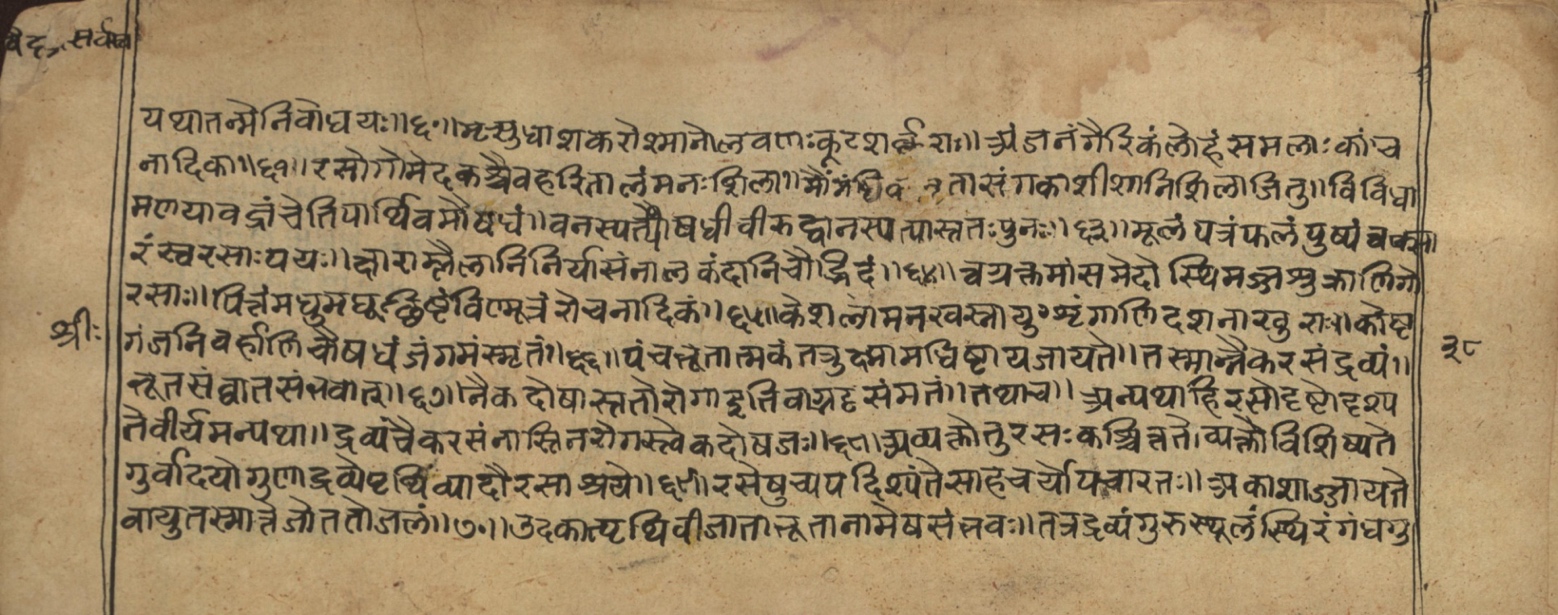 वैद्यसर्वस्व
यथातन्मेनिवोधयः॥६१॥मृत्सुधाशकरोश्मानोलवणःकूटशर्क्कराः॥अंजनंगैरिकंलोहंसमलाःकांच
नादिका॥६२॥रसोगोमेदकश्चैवहरितालंमनःशिला॥ तासंगकाशीशानिशिलाजितु॥विविधा
मणयावज्रंचेतिपार्थिवमौषधं॥वनस्पत्यौषधीवीरुद्वानस्पत्यास्ततःपुनः॥६३॥मूलंपत्रंफलंपुष्पं
रंस्वरसाःपयः॥क्षाराम्लैलानिनिर्यासंनालकंदानिचौद्भिदं॥६४॥त्वग्रक्तमांसमेदोस्थिमज्जाशुक्राणिगो
रसाः॥पित्तंमधुमधूच्छिष्टंविण्मूत्रंरोचनादिकं॥६५॥केशलोमनखस्नायुशृंगाणिदशनाखुराः॥कोष्ट
गंजनिवर्हाणिचौषधंजंगमंस्मृतं॥६६॥पंचभूतात्मकंतत्तुक्ष्मामधिष्टायजायते॥तस्मान्नैकरसंद्रव्यं॥
भूतसंघातसंभवात्॥६७॥नैकदोषास्ततोरोगाइतिवाग्भटसंमतं॥तथाच॥अन्यथाहिरसोदृष्टोदृश्य
तेवीर्यमन्यथा॥द्रव्यंचैकरसंनास्तिनरोगस्त्वेकदोषजः॥६८॥अव्यक्तोतुरसःकश्चिन्नते।व्यक्तोविशिष्यते
गुर्वादयोगुणाद्रव्येपृथिव्यादौरसाश्रये॥६९॥रसेषुव्यपदिश्यंतेसाहचर्योपचारतः॥अकाशाज्जायते
वायुतस्मात्तेजोततोजलं॥७०॥उदकात्पृथिवीजाताभूतानामेषसंभवः॥तत्रद्रव्यंगुरुस्थूलंस्थिरंगंधगु
श्रीः
३८